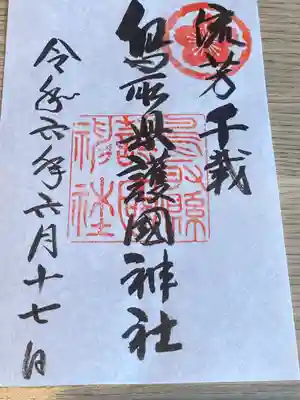 流芳千載
鳥取県護國神社
鳥取縣護國神社
令和六年六月十七日